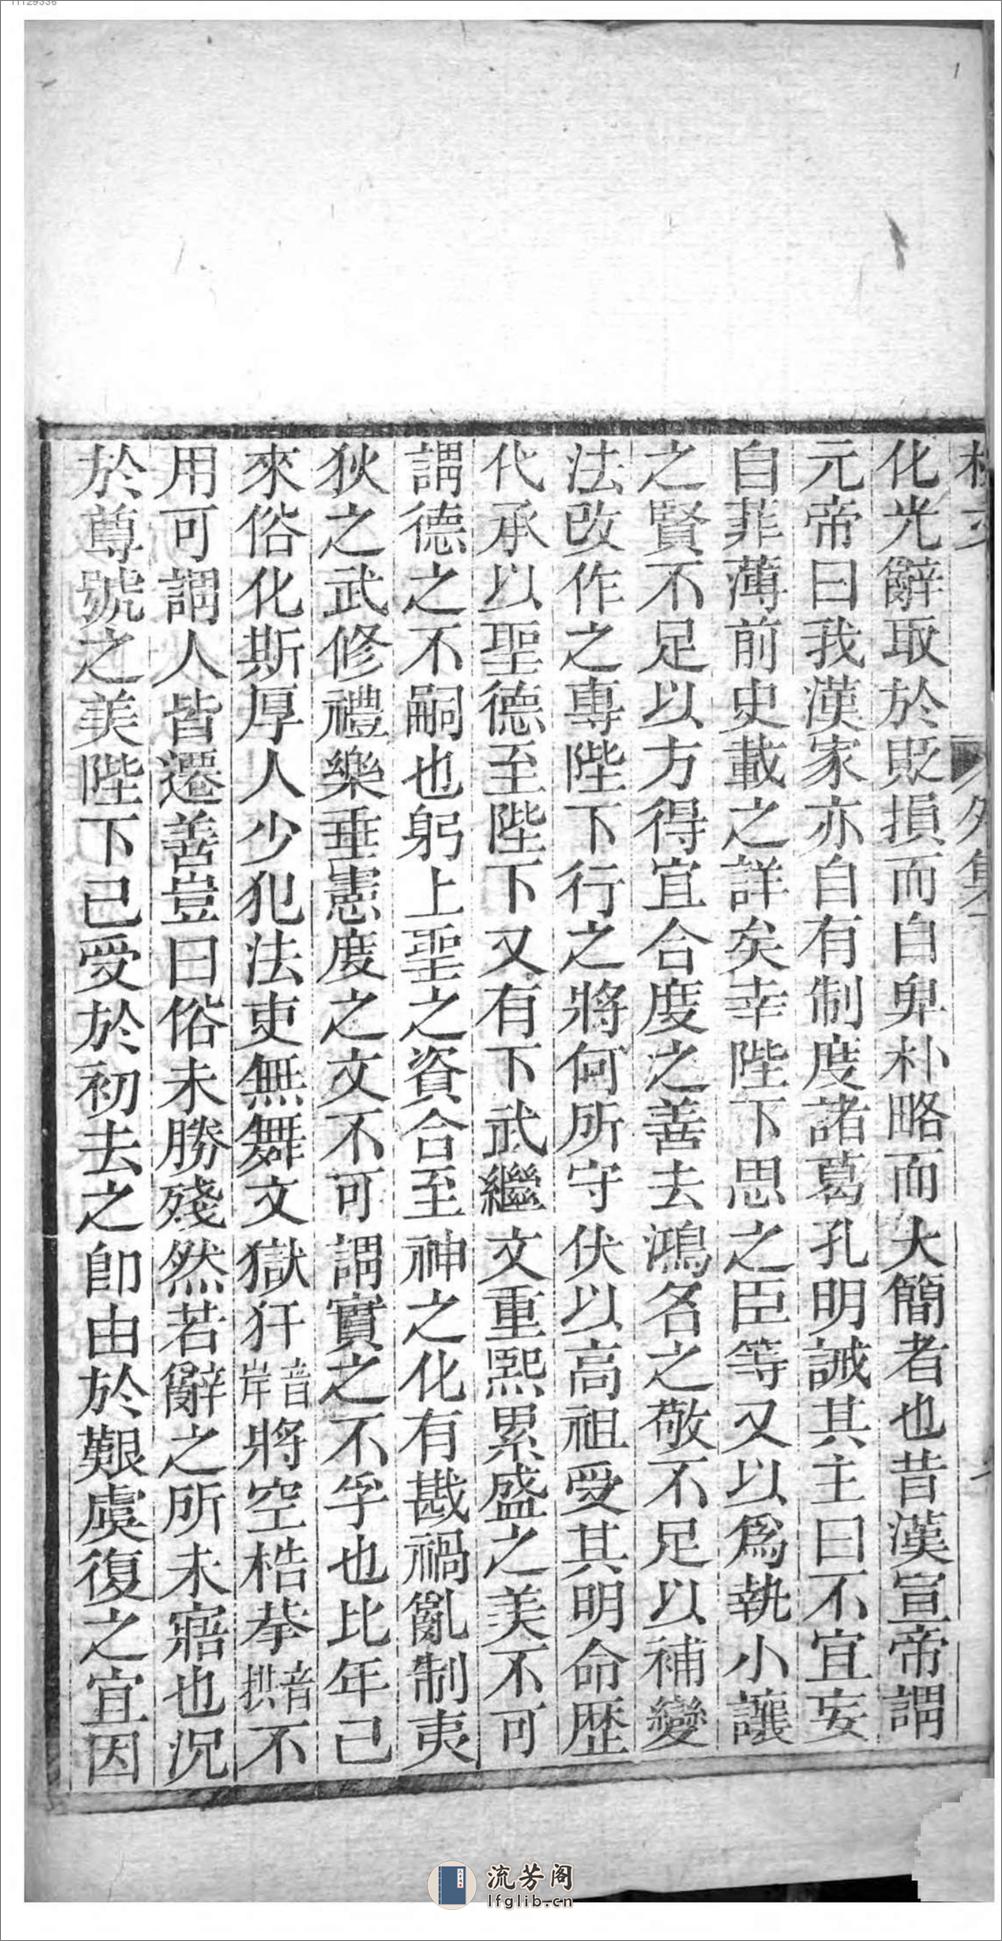 化光辭取於貶損而自卑朴略而大簡者也昔漢宣帝謂
元帝曰我漢家亦自有制度諸葛孔明誡其主曰不宜妄
自菲薄前史載之詳矣幸陛下思之臣等又以爲執小讓
之賢不足以方得宜合度之善去鴻名之敬不足以補變
法改作之專陛下行之將何所守伏以高祖受其明命歷
代承以聖德至陛下又有下武繼文重熙累盛之美不可
謂德之不嗣也躬上聖之資合至神之化有戡禍亂制夷
狄之武修禮樂垂憲度之文不可謂實之不孚也比年已
來俗化斯厚人少犯法吏無舞文獄犴音岸將空梏拲音拱不
用可謂人皆遷善豈曰俗未勝殘然若辭之所未寤也況
於尊號之美陛下已受於初去之卽由於艱虞復之宜因
流芳阁
lfglib.cn